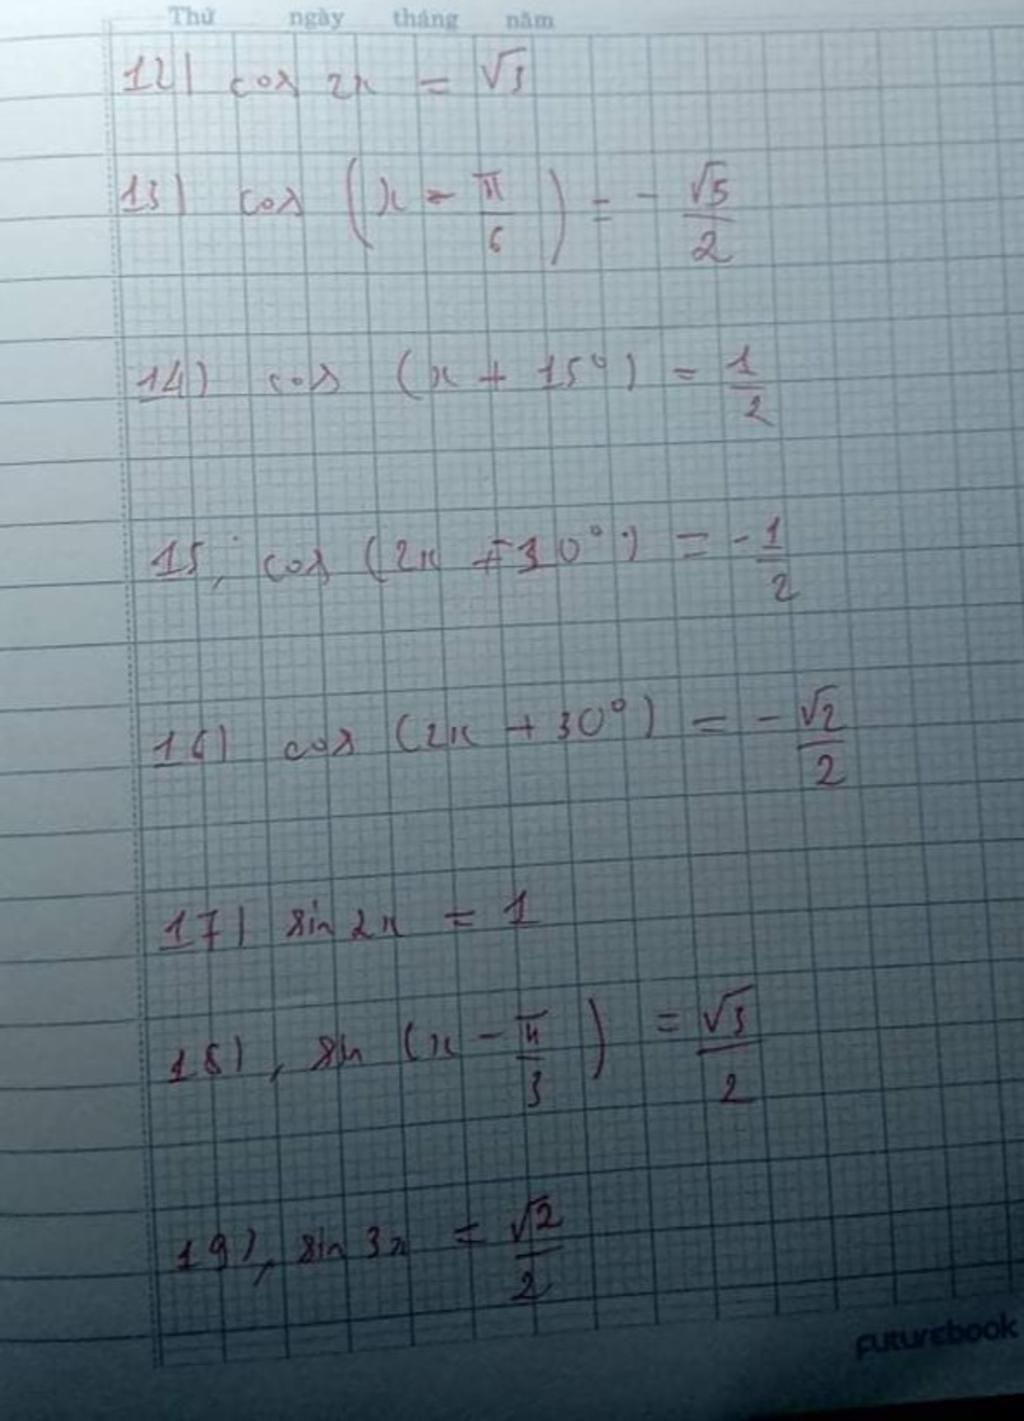 Thứ ngày tháng năm
12) cos 2x = √3
13) cos (x - π/6) = - √5/2
14) cos (x + 15°) = 1/2
15, cos (2x + 30°) = - 1/2
16) cos (2x + 30°) = - √2/2
17) sin 2x = 1
18), sin (x - π/3) = √3/2
19), sin 3x = √2/2
futurebook